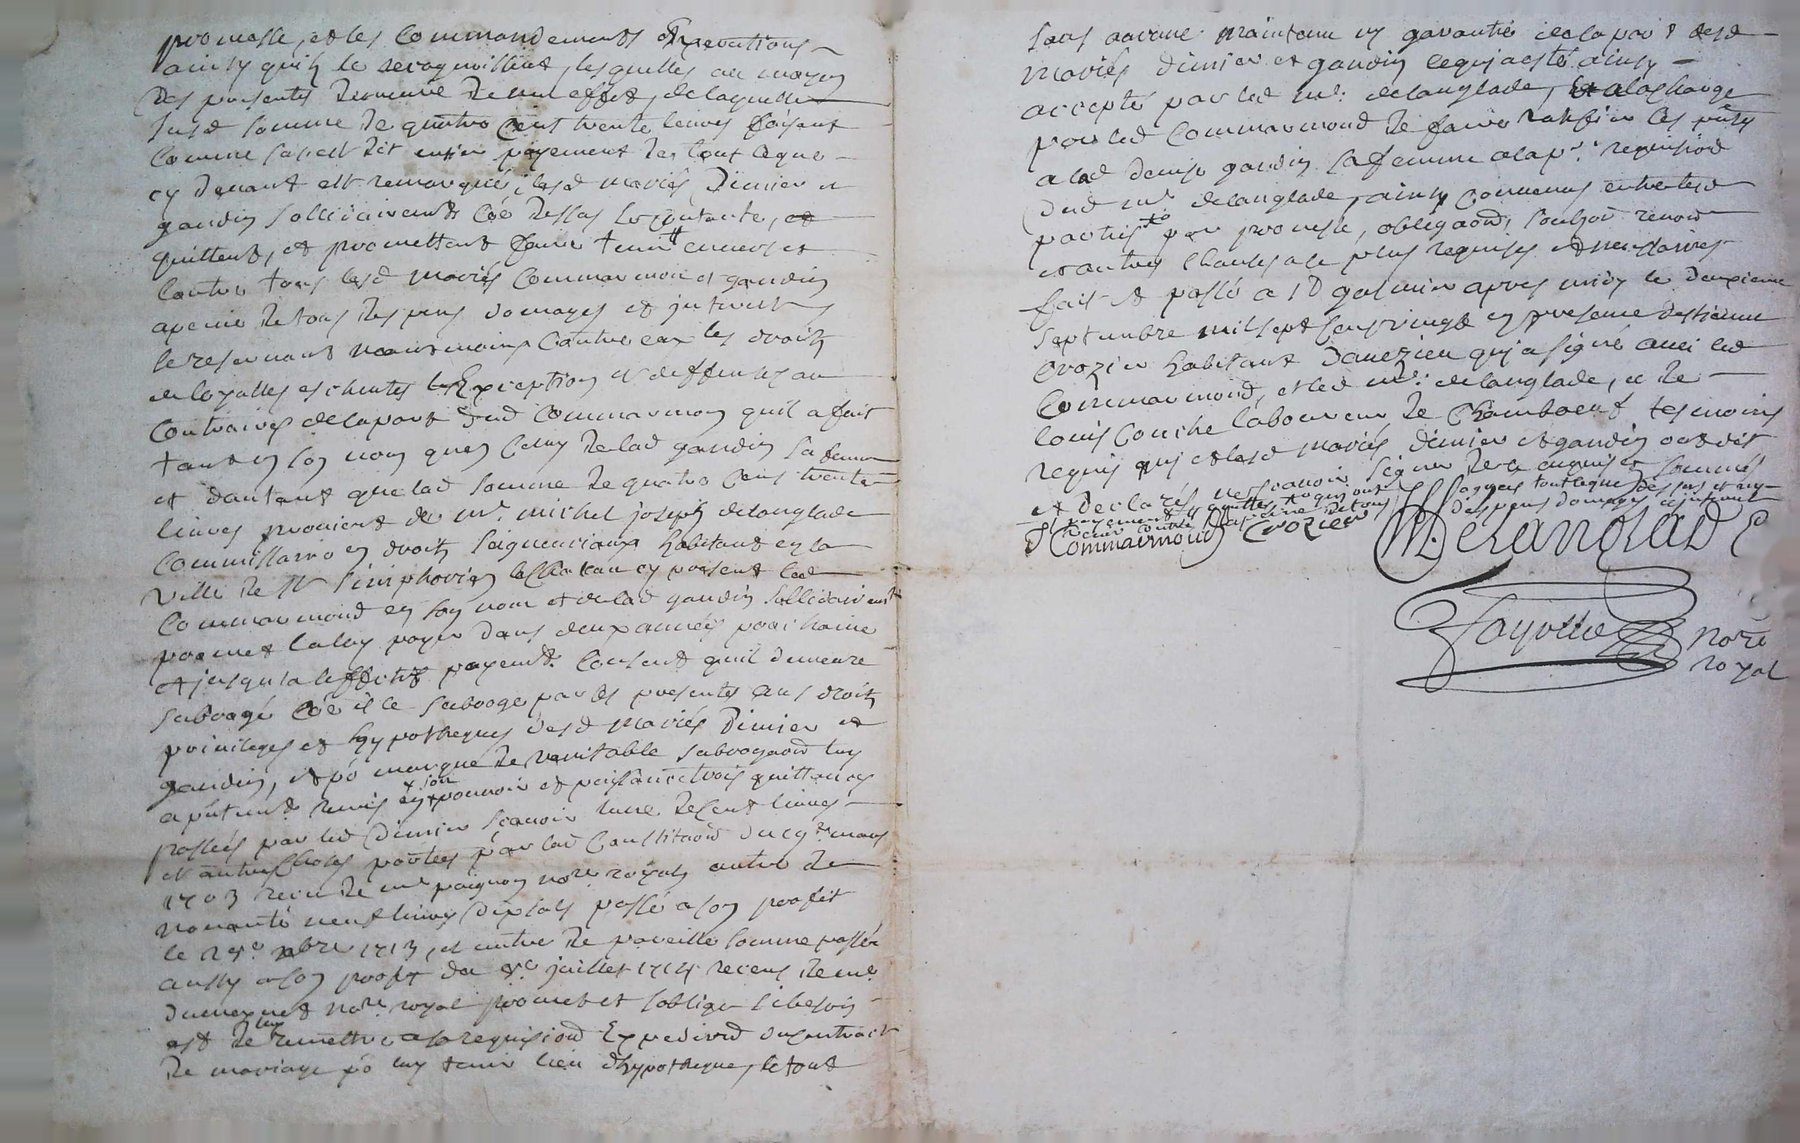 promesse, et les Commandements Executions
ainsy quil le recognoissent, lesquelles au moyen
Des presentes Demeure De nul effet, de laquelle
susd somme De quatre Cent trente livres faisant
Comme sus est Dit entier payement De tout ce que
cy devant est remarqué, lesd mariés Dimier et
gaudin sollidairement Coe Dessus le contante, et
quittent, et promettent faire tenir quitte envers et
Contre tous lesd mariés Commarmon et gaudin
a peine De tous Despens Domages et interest
se reservant neantmoins Contre eux les droits
de loyalles escheutes les Exceptions et deffenses au
Contraires de la part dud Commarmon quil a fait
tant en son nom quen Celuy De lad gaudin sa femme
et dautant que lad somme De quatre Cens trente
livres provient de mr. michel joseph delanglade
Commissaire en droits seigneuriaux habitant en la
ville De St Simphorien le Chateau cy present led
Commarmond en son nom et de lad gaudin sollidairement
promet la luy payer Dans deux années prochaine
et jusqu'a leffectif payement Consent quil demeure
subrogé Coe il le subroge par les presentes aux droits
privileges et hypotheques desd mariés Dimier et
gaudin, et po marque De veritable subrogaon luy
a presentement remis en son pouvoir et puissance trois quittances
passées par led Dimier scavoir lune De Cent livres
et autres Choses portées par lad Constituon du mars
1703 receu De me paignon nore. royal, autre De
nonante neuf livres Dix sols passé a son profit
le 29e. xbre 1713, et autre De pareille somme passée
aussy a son profit du juillet 1714 receus De me
Dumeynet nore. royal promet et soblige si besoin
est De luy remettre a sa requision Expedion du contract
De mariage po luy tenir lieu dhypotheque, le tout
sans aucune maintenue ny garantie de la part desd
mariés dimier et gaudin ce qui a esté ainsy
accepté par led mr. delanglade, Et a la Charge
par led Commarmond De faire ratifier Ces ptes
a lad denise gaudin sa femme a la pre. requision
dud mr. delanglade, ainsy Convenus entre lesd
parties par promesse, obligaon, soubzon renon
et autres Clauses a ce plus requises et necessaires
fait et passé a St galmier apres midy le Deuxieme
septembre mil sept Cens vingt en presence destienne
Crozier habitant Daveizieu qui a signé avec led
Commarmond, et led mr. delanglade, et De
louis Couche laboureur De Chamboeuf tesmoins
requis qui et lesd mariés dimier et gaudin ont dit
et Declarés ne scavoir signer De ce enquis et sommés
Commarmond Crozier M. Delanglade
Fayolle nore
royal